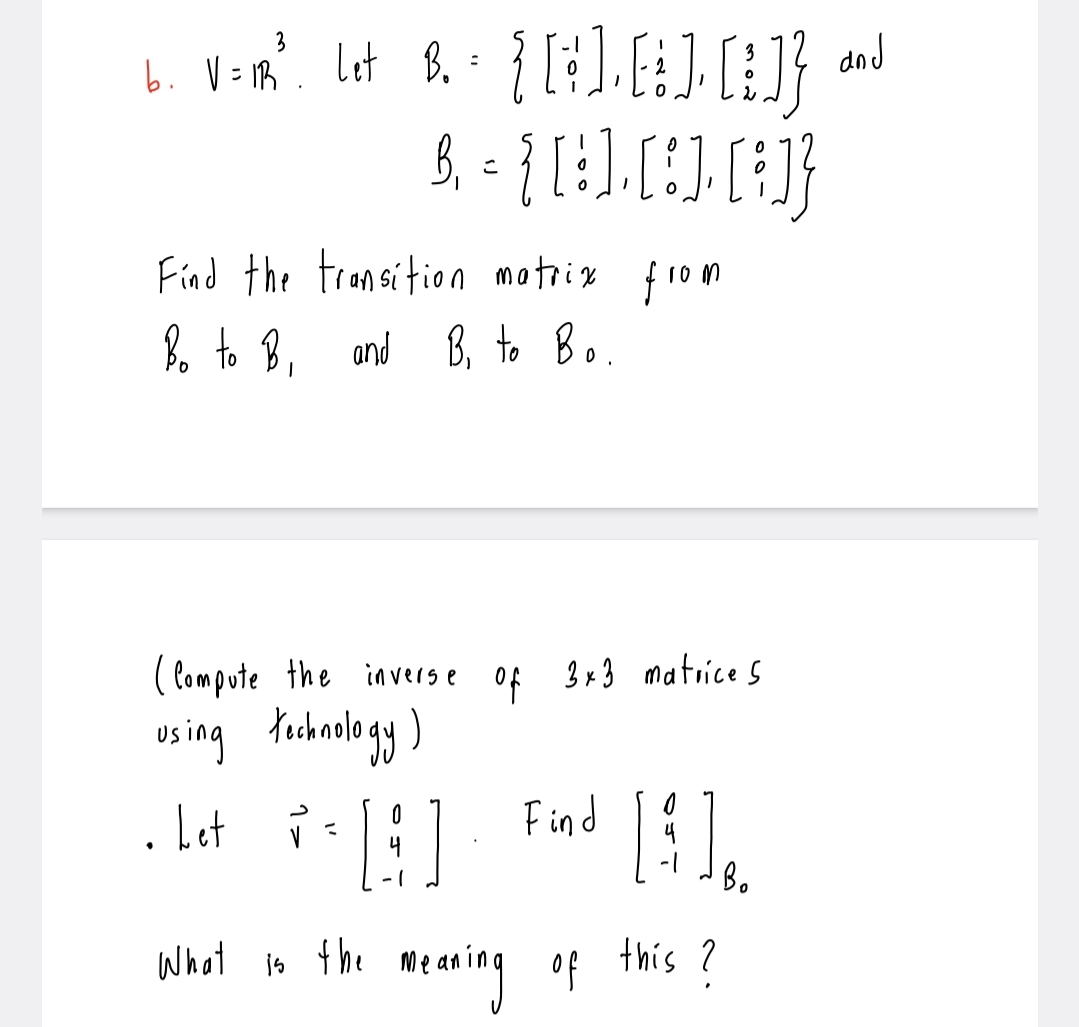 b. V = ℝ³. Let B₀ = { [-1 0 1], [1 -2 0], [3 0 2] } and
B₁ = { [1 0 0], [0 1 0], [0 0 1] }
Find the transition matrix from
B₀ to B₁ and B₁ to B₀.
(Compute the inverse of 3×3 matrices
using technology)
. Let v⃗ = [0 4 -1]. Find [0 4 -1]B₀
What is the meaning of this?